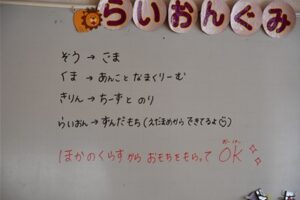 らいおんぐみ
ぞう → ごま
くま → あんことなまくりーむ
きりん → ちーずと のり
らいおん → ずんだもち (えだまめからできてるよ)
ほかのくらすから おもちをもらって OK